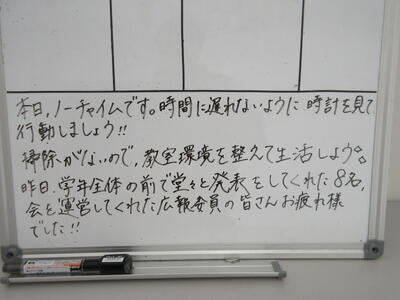 本日、ノーチャイムです。時間に遅れないように時計を見て
行動しましょう!!
掃除がないので、教室環境を整えて生活しよう。
昨日、学年全体の前で堂々と発表をしてくれた8名、
会を運営してくれた広報委員の皆さんお疲れ様
でした!!